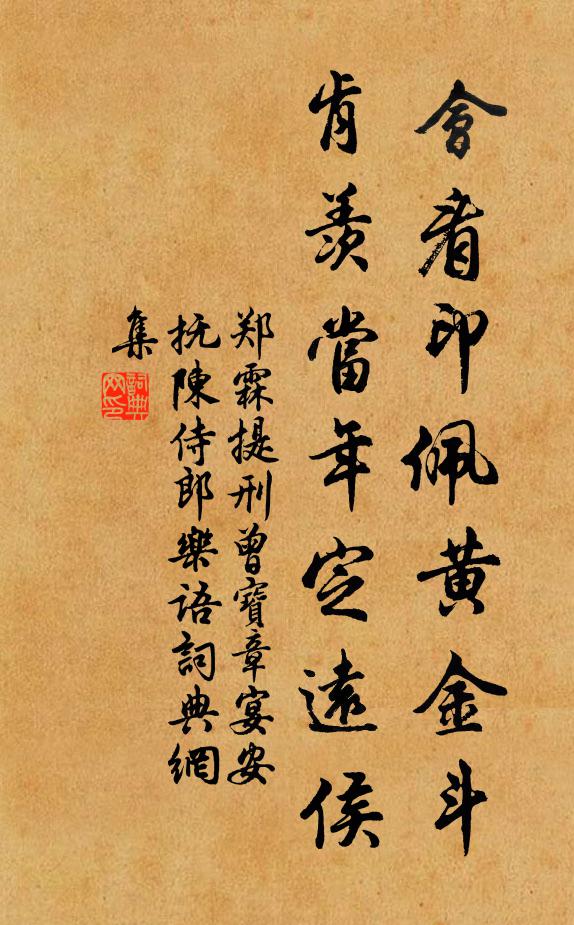 會看印佩黄金斗
肯羨當年定遠侯
郑霖提刑曾寶章宴安
抚陳侍郎樂語詞典網
集
詞典
网印